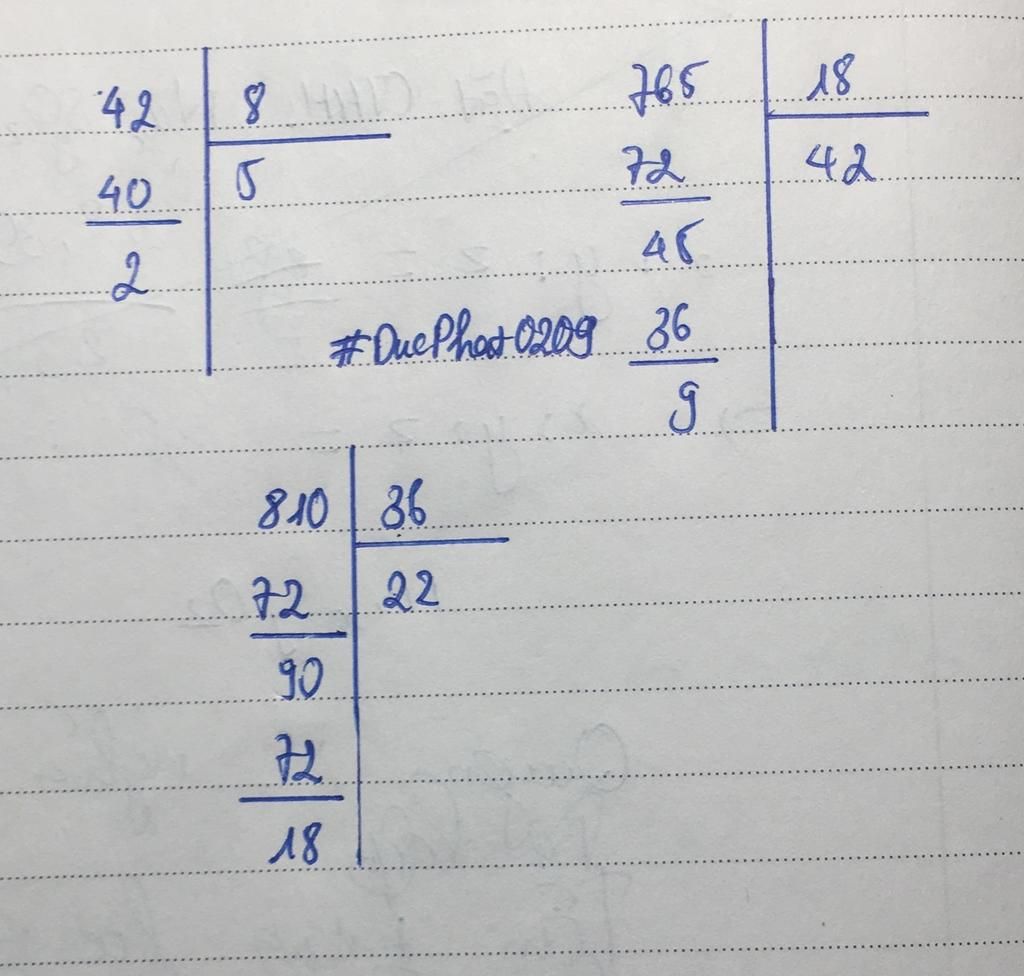 42 8
40 5
2
765 18
72 42
45
36
9
#DucPhat0209
810 36
72 22
90
72
18